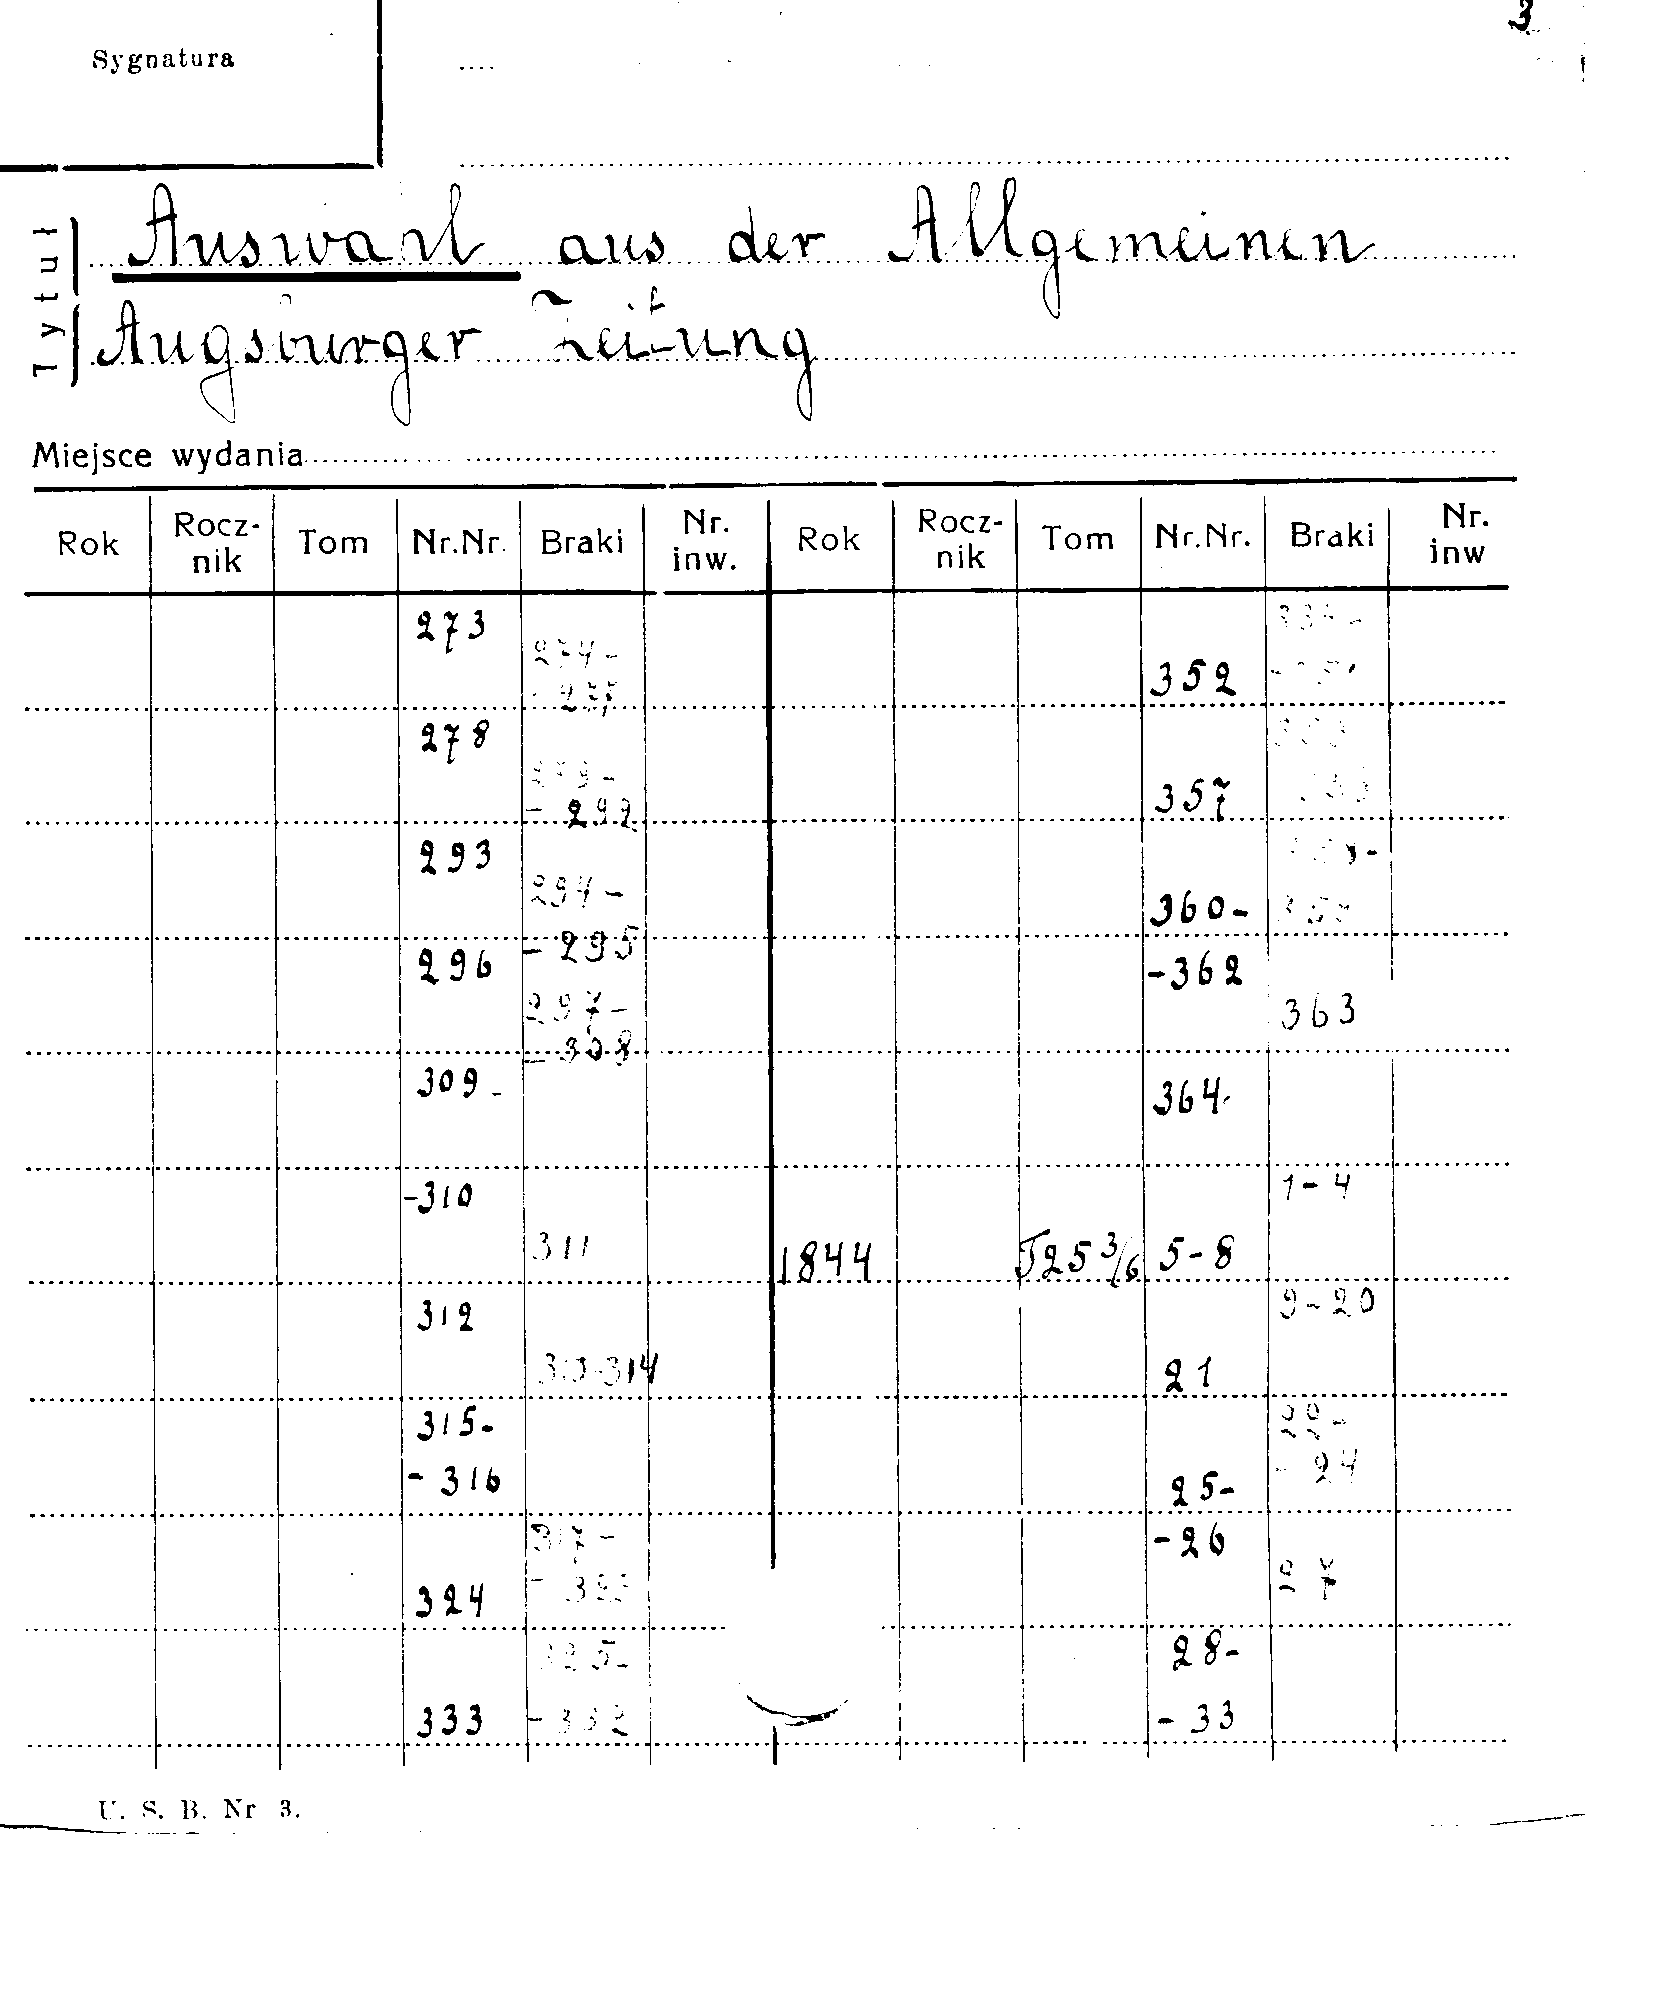 3
Sygnatura
Tytuł
Auswahl aus der Allgemeinen
Augsburger Zeitung
Miejsce wydania
Rok Rocz-nik Tom Nr.Nr. Braki Nr. inw. Rok Rocz-nik Tom Nr.Nr. Braki Nr. inw
273
274-
- 277
278
- 292
293
294-
- 295
296
297-
- 308
309-
-310
311
312
313-314
315-
- 316
317-
324
325-
333 - 332
352
357
360-
-362
363
364
1-4
1844 5-8
9-20
21
22-
- 24
25-
-26
27
28-
- 33
U. S. B. Nr 3.